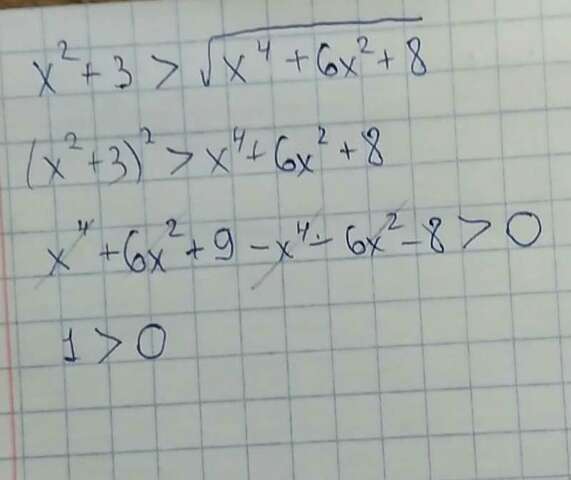 x² + 3 > √(x⁴ + 6x² + 8)
(x² + 3)² > x⁴ + 6x² + 8
x⁴ + 6x² + 9 - x⁴ - 6x² - 8 > 0
1 > 0